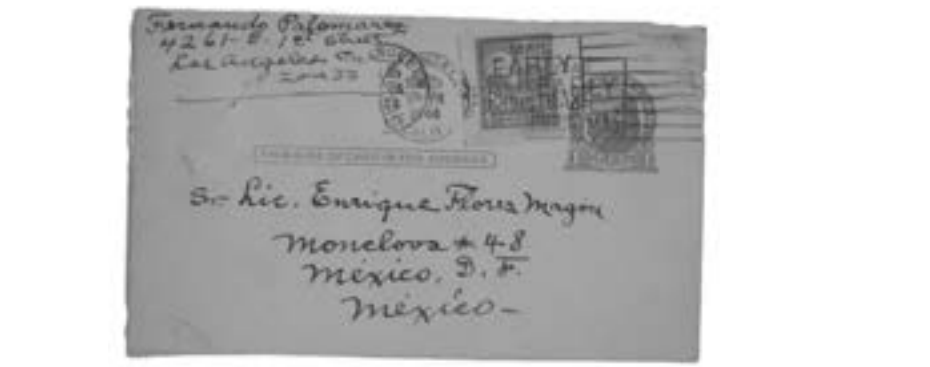 Fernando Palomarez
4261-E. 1st Street
Los Angeles
Zone 33
THIS SIDE OF CARD IS FOR ADDRESS
Sr. Lic. Enrique Flores Magón
Monclova # 48
México, D. F.
México-